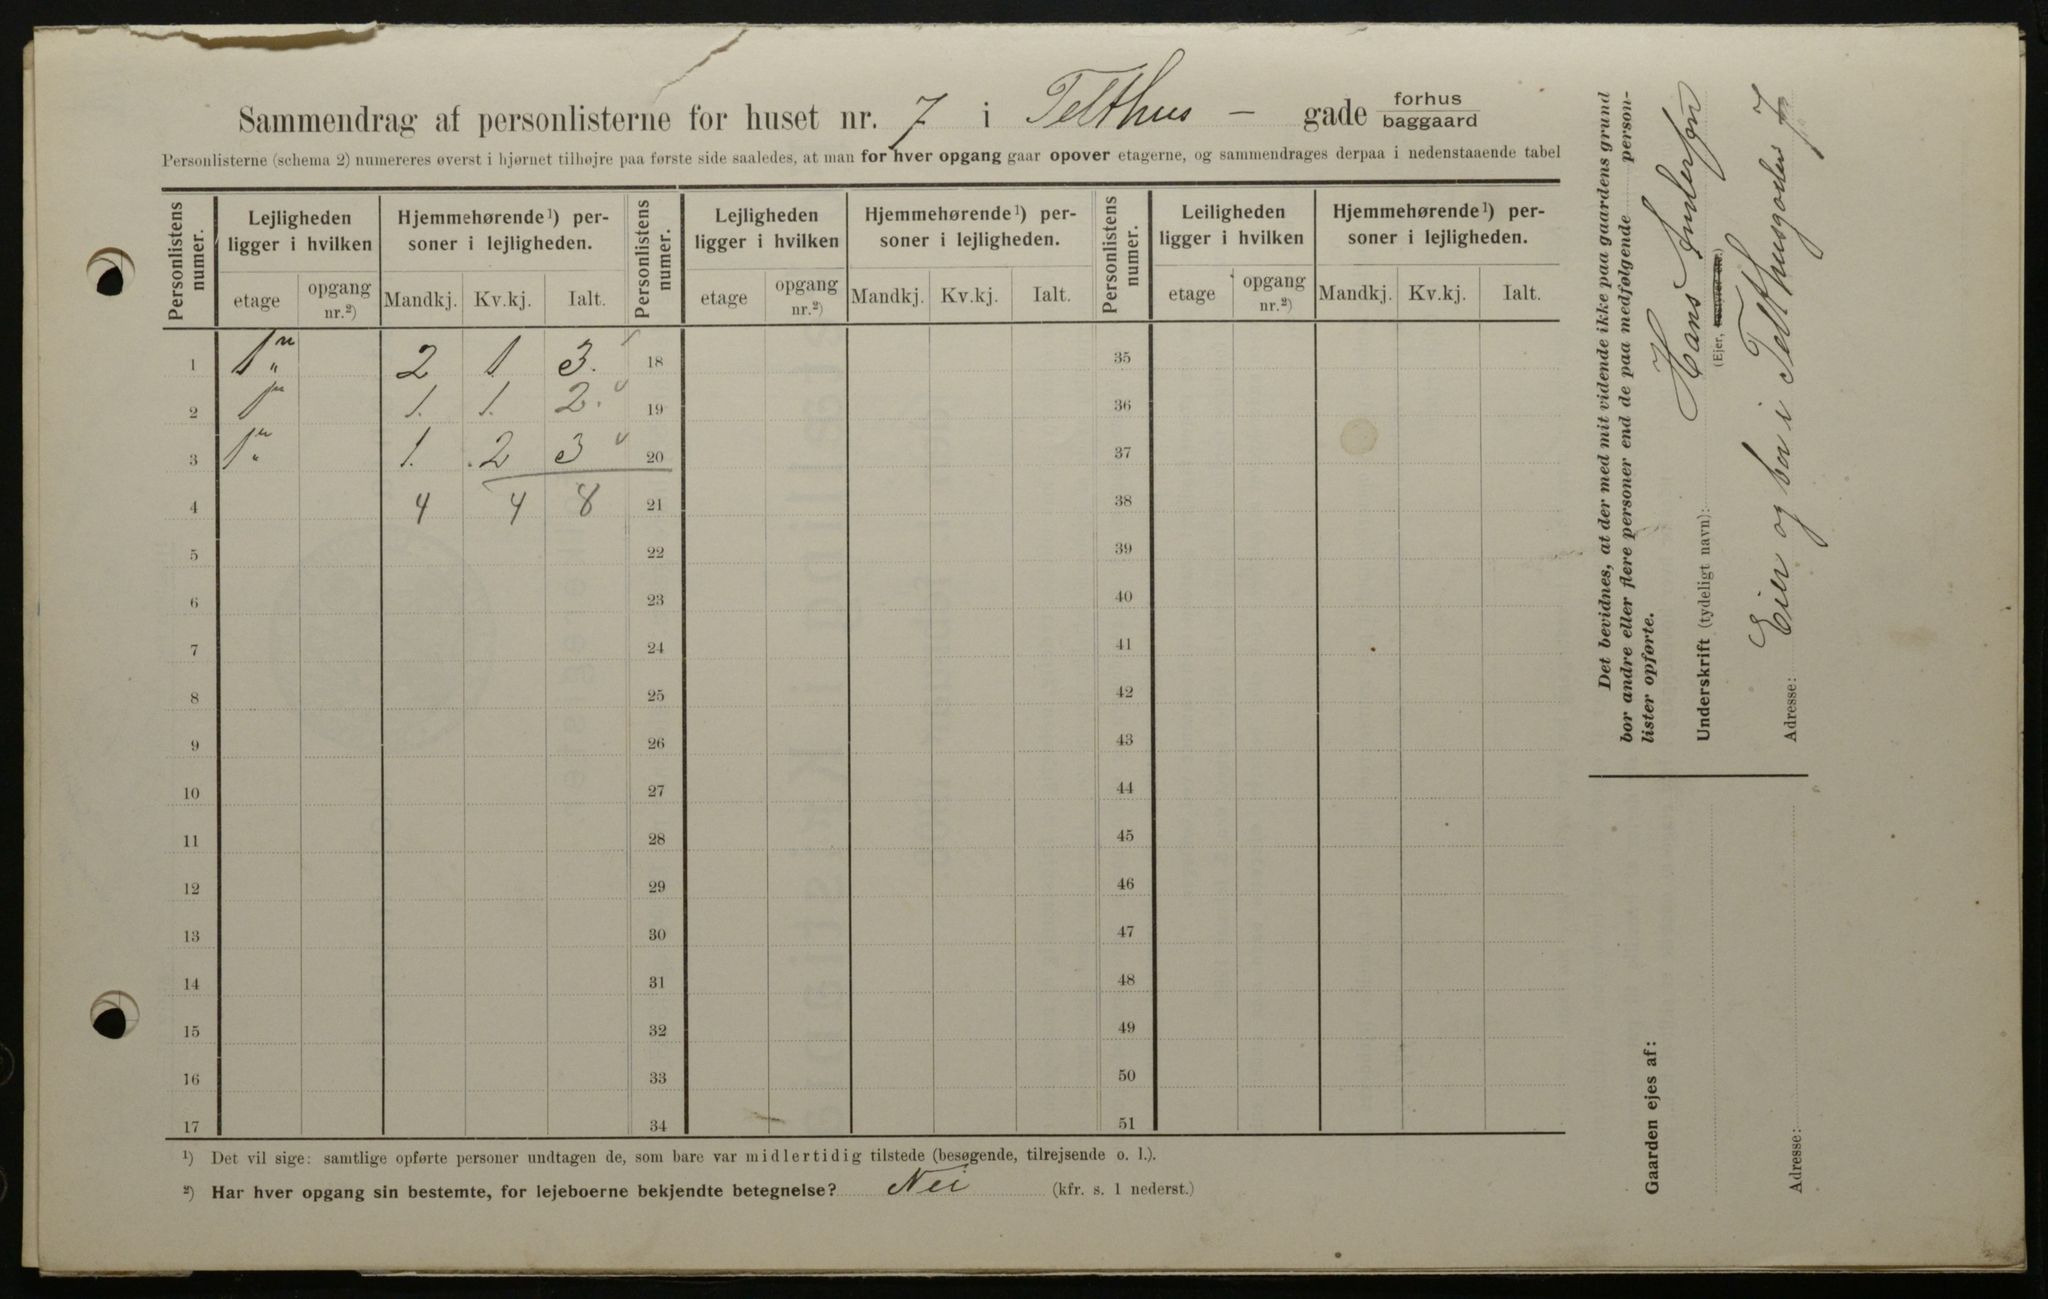 Sammendrag af personlisterne for huset nr. 7 i Telthus – gade forhus baggaard
Personlisterne (schema 2) numereres øverst i hjørnet tilhøjre paa første side saaledes, at man for hver opgang gaar opover etagerne, og sammendrages derpaa i nedenstaaende tabel
Personlistens numer. Lejligheden ligger i hvilken Hjemmehørende¹) personer i lejligheden. Personlistens numer. Lejligheden ligger i hvilken Hjemmehørende¹) personer i lejligheden. Personlistens numer. Leiligheden ligger i hvilken Hjemmehørende¹) personer i lejligheden.
etage opgang nr.²) Mandkj. Kv.kj. Ialt. etage opgang nr.²) Mandkj. Kv.kj. Ialt. etage opgang nr.²) Mandkj. Kv.kj. Ialt.
1 1 2 1 3. 18 35
2 1 1. 1. 2. 19 36
3 1 1. 2 3 20 37
4 4 4 8 21 38
5 22 39
6 23 40
7 24 41
8 25 42
9 26 43
10 27 44
11 28 45
12 29 46
13 30 47
14 31 48
15 32 49
16 33 50
17 34 51
¹) Det vil sige: samtlige opførte personer undtagen de, som bare var midlertidig tilstede (besøgende, tilrejsende o. l.).
²) Har hver opgang sin bestemte, for lejeboerne bekjendte betegnelse? Nei (kfr. s. 1 nederst.)
Det bevidnes, at der med mit vidende ikke paa gaardens grund
bor andre eller flere personer end de paa medfølgende person-
lister opførte.
Underskrift (tydeligt navn): Hans Andersen
(Ejer, bestyrer etc.)
Eier og bor i Telthusgaden 7
Adresse:
Gaarden ejes af:
Adresse: